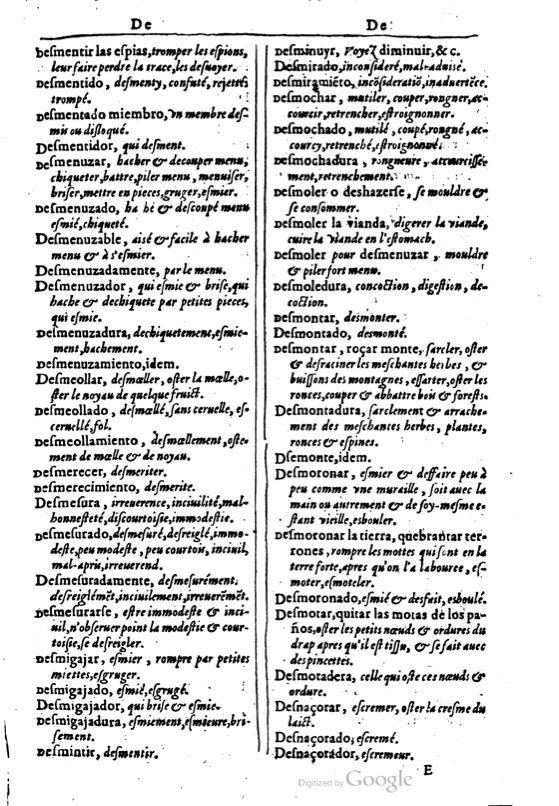 De
Desmentir las espias, tromper les espions,
leur faire perdre la trace, les desuoyer.
Desmentido, desmenty, confuté, rejetté
trompé.
Desmentado miembro, vn membre desmis
ou disloqué.
Desmentidor, qui desment.
Desmenuzar, hacher & decouper menu,
chiqueter, battre, piler menu, menuiser,
briser, mettre en pieces, gruger, esmier.
Desmenuzado, ha hé & descoupé menu
esmié, chiqueté.
Desmenuzable, aisé & facile à hacher
menu & à s'esmier.
Desmenuzadamente, par le menu.
Desmenuzador, qui esmie & brise, qui
hache & dechiquete par petites pieces,
qui esmie.
Desmenuzadura, dechiquetement, esmiement,
hachement.
Desmenuzamiento, idem.
Desmeollar, desmœller, oster la mœlle, oster
le noyau de quelque fruict.
Desmeollado, desmœllé, sans ceruelle, esceruellé,
fol.
Desmeollamiento, desmœllement, ostement
de mœlle & de noyau.
Desmerecer, desmeriter.
Desmerecimiento, desmerite.
Desmesura, irreuerence, inciuilité, malhonnesteté,
discourtoisie, immodestie.
Desmesurado, desmesuré, desreiglé, immodeste,
peu modeste, peu courtois, inciuil,
mal-apris, irreuerend.
Desmesuradamente, desmesurément,
desreiglémẽt, inciuilement, irreuerẽmẽt.
Desmesurarse, estre immodeste & inciuil,
n'obseruer point la modestie & courtoisie,
se desreigler.
Desmigajar, esmier, rompre par petites
miettes, esgruger.
Desmigajado, esmié, esgrugé.
Desmigajador, qui brise & esmie.
Desmigajadura, esmiement, esmieure, brisement.
Desmintir, desmentir.
De
Desminuyr, Voyez diminuir, &c.
Desmirado, inconsideré, mal-auisé.
Desmiramiẽto, incõsideratiõ, inaduertẽce.
Desmochar, mutiler, couper, rongner, accourcir,
retrencher, estroignonner.
Desmochado, mutilé, coupé, rongné, accourcy,
retrenché, estroignonné.
Desmochadura, rongneure, accourcissement,
retrenchement.
Desmoler o deshazerse, se mouldre &
se consommer.
Desmoler la vianda, digerer la viande,
cuire la viande en l'estomach.
Desmoler pour desmenuzar, mouldre
& piler fort menu.
Desmoledura, concoction, digestion, decoction.
Desmontar, desmonter.
Desmontado, desmonté.
Desmontar, roçar monte, sarcler, oster
& desraciner les meschantes herbes, &
buissons des montagnes, essarter, oster les
ronces, couper & abbattre bois & forests.
Desmontadura, sarclement & arrachement
des meschantes herbes, plantes,
ronces & espines.
Dsemonte, idem.
Desmoronar, esmier & deffaire peu à
peu comme vne muraille, soit auec la
main ou autrement & de soy-mesme estant
vieille, esbouler.
Desmoronar la tierra, quebrantar terrones,
rompre les mottes qui sont en la
terre forte, apres qu'on l'a labouree, esmoter,
esmoteler.
Desmoronado, esmié & desfait, esboulé.
Desmotar, quitar las motas de los paños,
oster les petits nœuds & ordures du
drap apres qu'il est tissu, & se fait auec
des pincettes.
Desmotadera, celle qui oste ces nœuds &
ordure.
Desnaçorar, escremer, oster la cresme du
laict.
Desnaçorado, escremé.
Desnaçorador, escremeur.
E
Digitized by Google